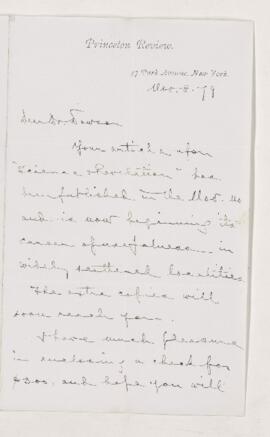 Princeton Review.
37 Park Avenue, New York.
Nov. 8. 79
Dear Dr. Dawson
Your article upon
"Science & Revelation" has
been published in the Nov. No
and is now beginning its
career of usefulness in
widely scattered localities.
The extra copies will
soon reach you.
I have much pleasure
in enclosing a check for
and hope you will